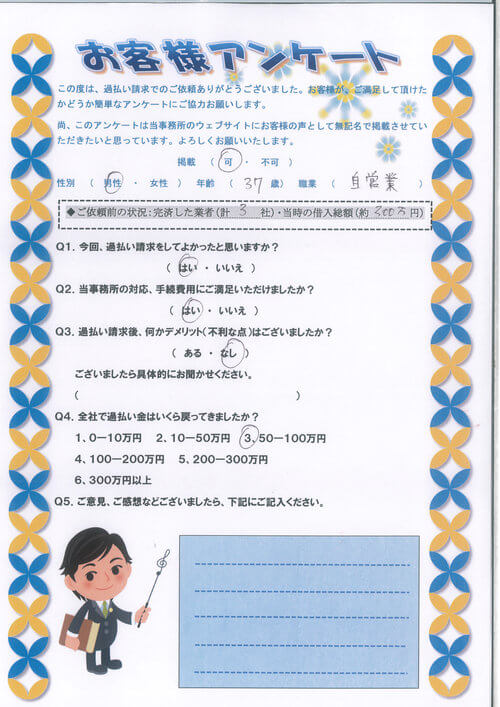 お客様アンケート
この度は、過払い請求でのご依頼ありがとうございました。お客様が、ご満足して頂けた
かどうか簡単なアンケートにご協力お願いします。
尚、このアンケートは当事務所のウェブサイトにお客様の声として無記名で掲載させてい
ただきたいと思っています。よろしくお願いいたします。
掲載 ( 可 ・ 不可 )
性別 ( 男性 ・ 女性 ) 年齢 ( 37 歳) 職業 ( 自営業 )
◆ご依頼前の状況:完済した業者(計 3 社)・当時の借入総額(約 200万 円)
Q1. 今回、過払い請求をしてよかったと思いますか?
( はい ・ いいえ )
Q2. 当事務所の対応、手続費用にご満足いただけましたか?
( はい ・ いいえ )
Q3. 過払い請求後、何かデメリット(不利な点)はございましたか?
( ある ・ なし )
ございましたら具体的にお聞かせください。
( )
Q4. 全社で過払い金はいくら戻ってきましたか?
1、0-10万円 2、10-50万円 3、50-100万円
4、100-200万円 5、200-300万円
6、300万円以上
Q5. ご意見、ご感想などございましたら、下記にご記入ください。